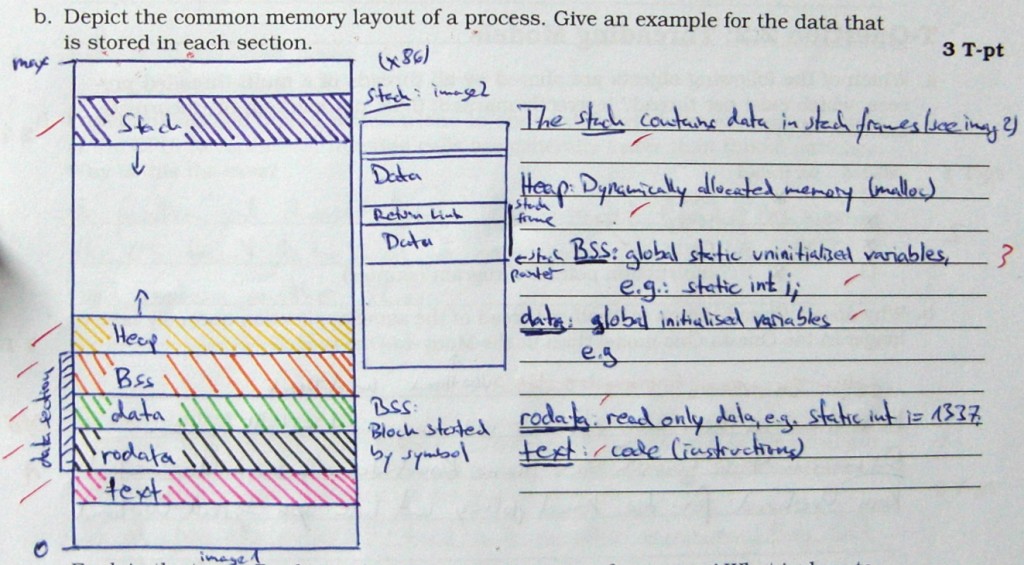 b. Depict the common memory layout of a process. Give an example for the data that
is stored in each section.
3 T-pt
max
Stack
Heap
Bss
data
rodata
text
0
data section
image1
(x86)
Stack: image2
Data
Return Link
Data
stack
frame
stack
pointer
BSS:
Block stated
by symbol
The stack contains data in stack frames (see imag 2)
Heap: Dynamically allocated memory (malloc)
BSS: global static uninitialised variables,
e.g.: static int i;
3
data: global initialised variables
e.g
rodata: read only data, e.g. static int i= 1337
text: code (instructions)